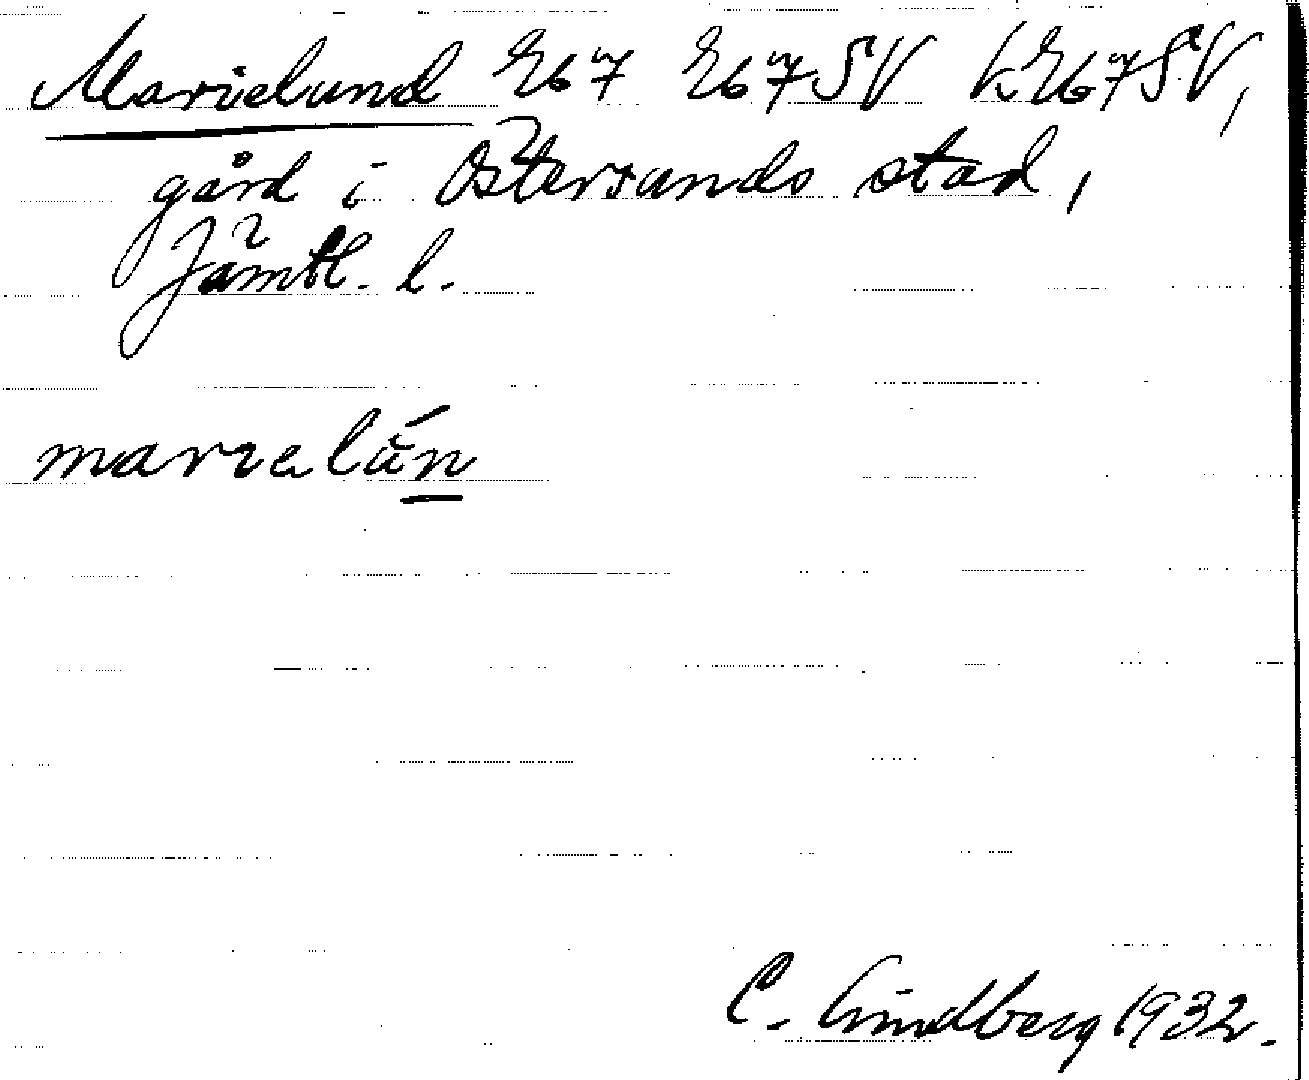 Marielund Eb7 Eb7SV hEb7SV,
gård i Östersunds stad,
Jämtl. l.
marıelún
C. Lindberg 1932.